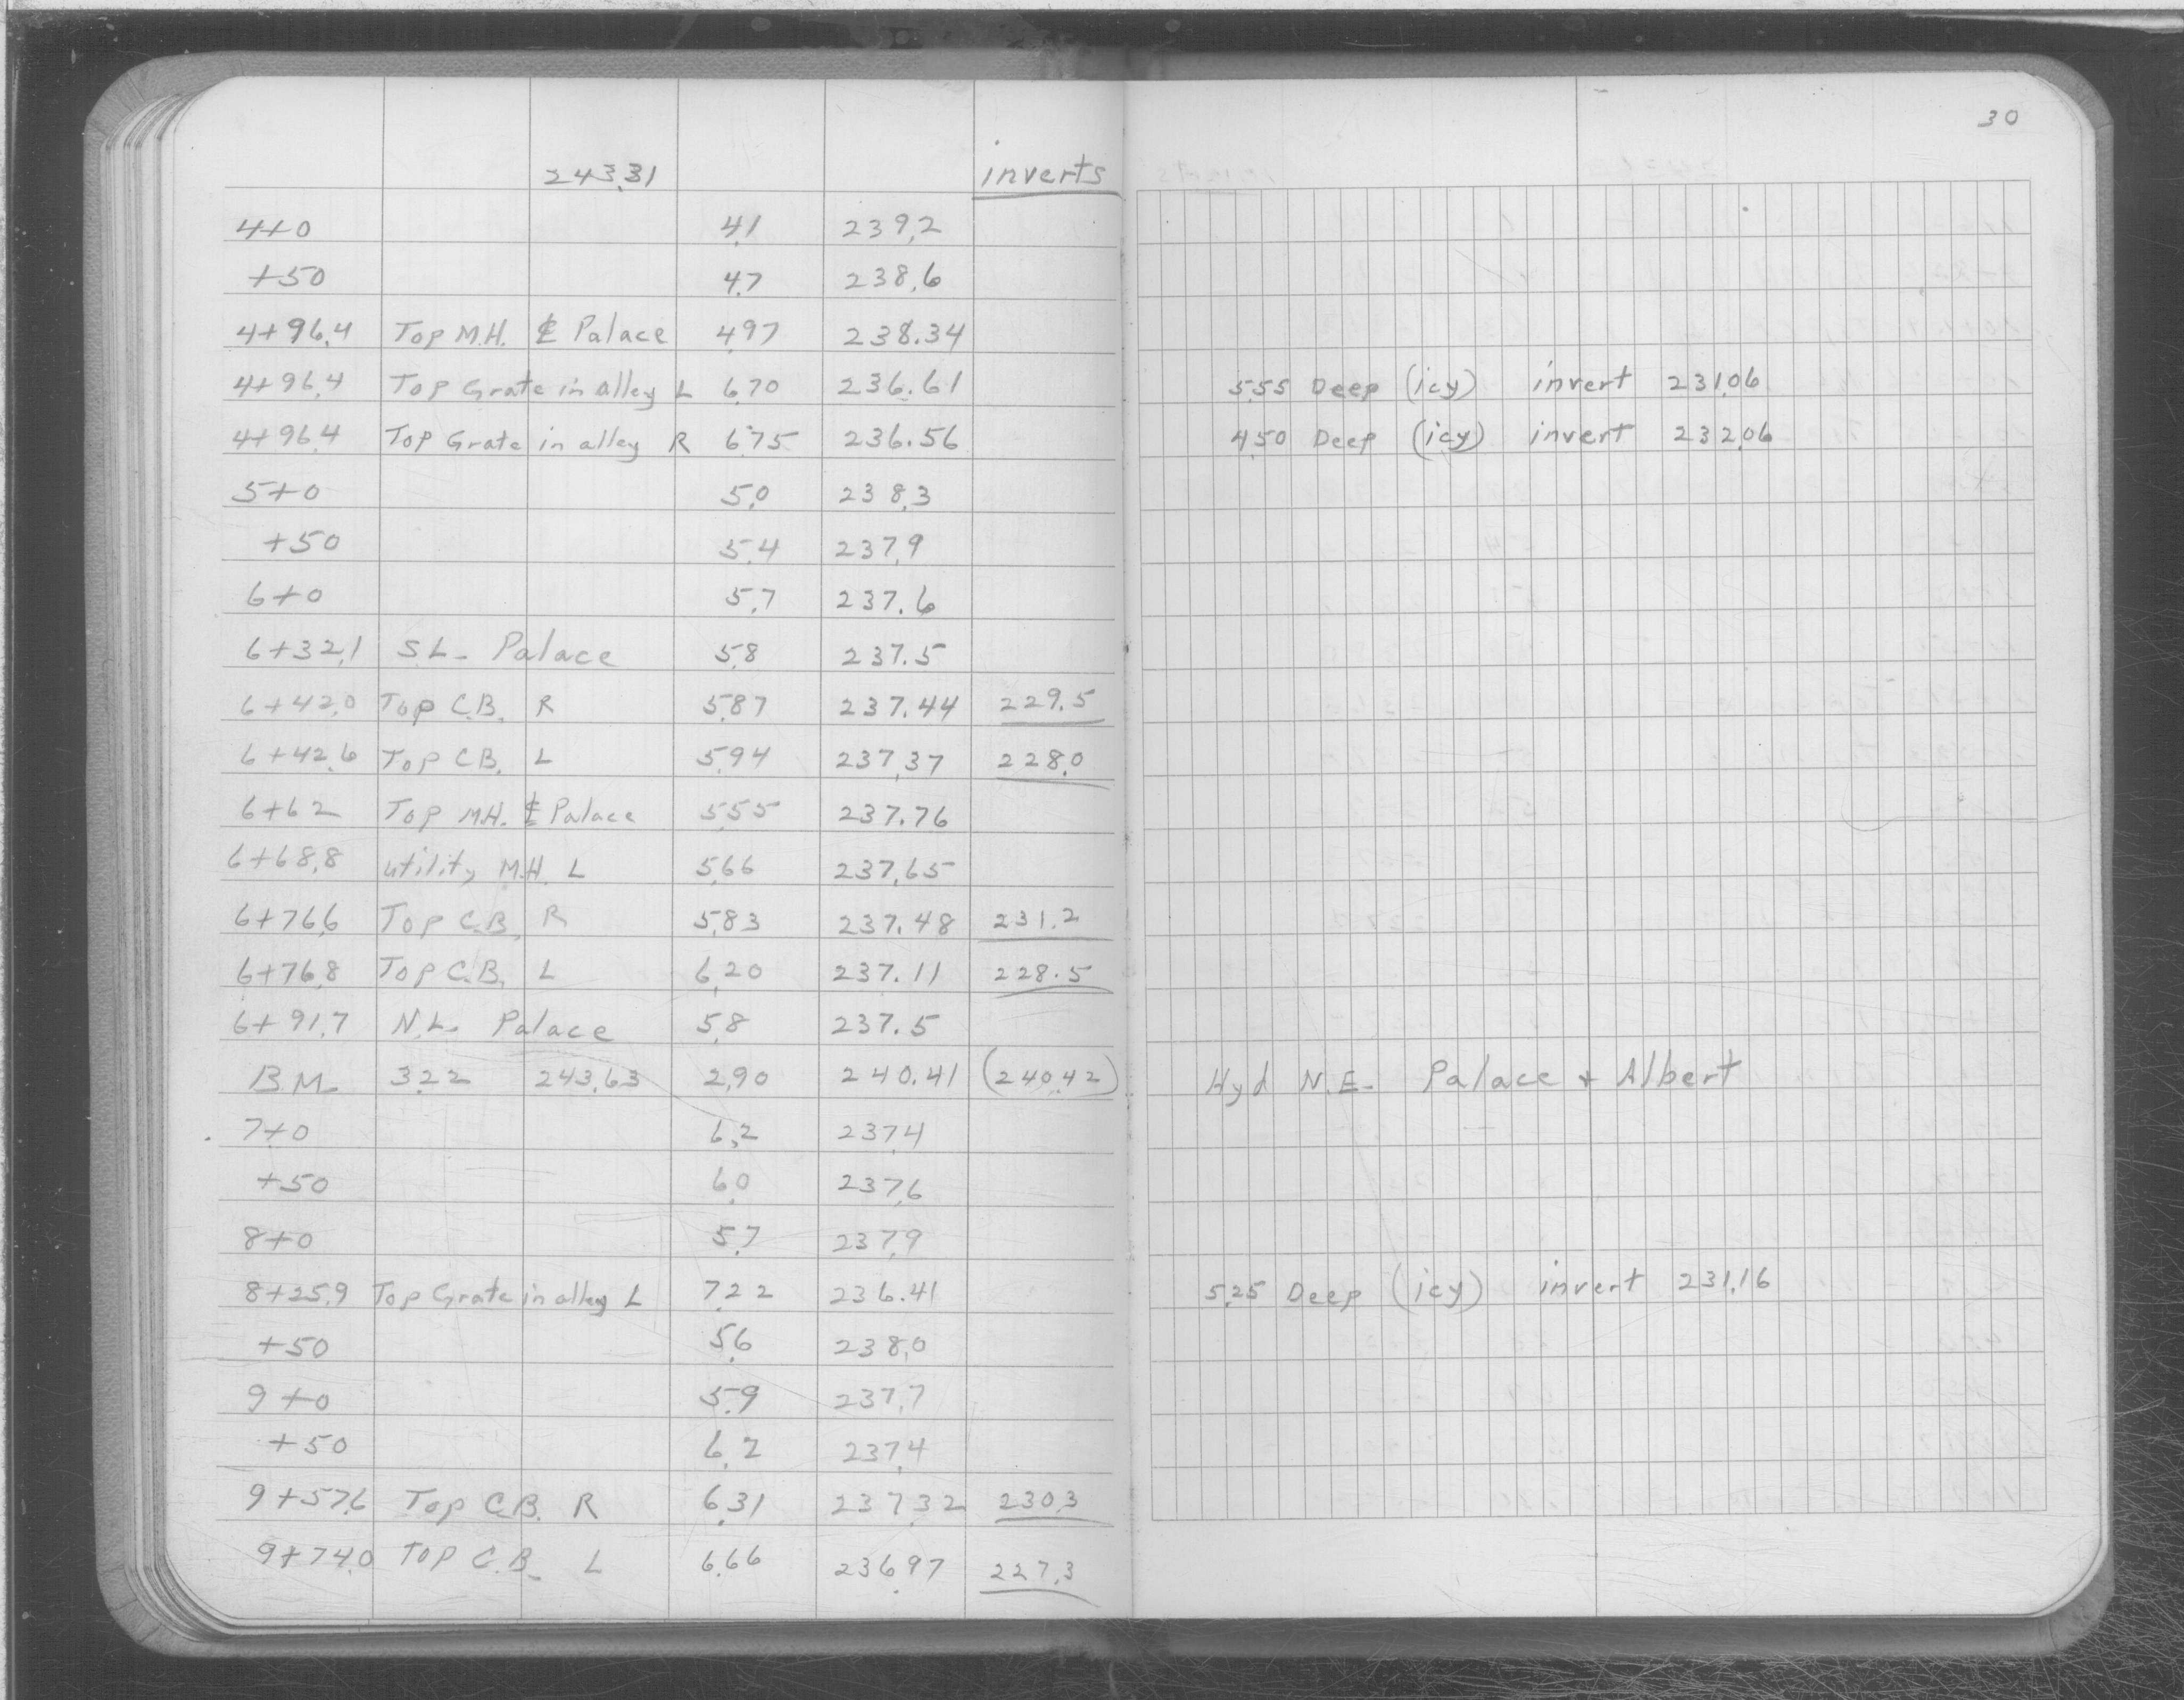 30
243.31 inverts
4+0 4.1 239.2
+50 4.7 238.6
4+96.4 Top M.H. ℄ Palace 4.97 238.34
4+96.4 Top Grate in alley L 6.70 236.61 5.55 Deep (icy) invert 231.06
4+96.4 Top Grate in alley R 6.75 236.56 4.50 Deep (icy) invert 232.06
5+0 5.0 238.3
+50 5.4 237.9
6+0 5.7 237.6
6+32.1 S.L. Palace 5.8 237.5
6+42.0 Top C.B. R 5.87 237.44 229.5
6+42.6 Top C.B. L 5.94 237.37 228.0
6+62 Top M.H. ℄ Palace 5.55 237.76
6+68.8 utility M.H. L 5.66 237.65
6+76.6 Top C.B. R 5.83 237.48 231.2
6+76.8 Top C.B. L 6.20 237.11 228.5
6+91.7 N.L. Palace 5.8 237.5
B.M. 3.22 243.63 2.90 240.41 (240.42) Hyd N.E. Palace + Albert
7+0 6.2 237.4
+50 6.0 237.6
8+0 5.7 237.9
8+25.9 Top Grate in alley L 7.22 236.41 5.25 Deep (icy) invert 231.16
+50 5.6 238.0
9+0 5.9 237.7
+50 6.2 237.4
9+57.6 Top C.B. R 6.31 237.32 230.3
9+74.0 Top C.B. L 6.66 236.97 227.3